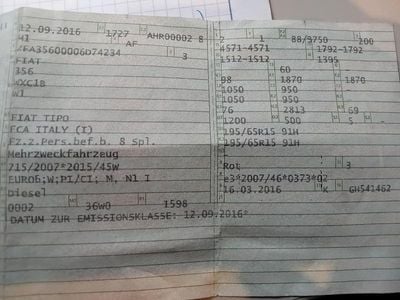 12.09.2016 1727 AHR00002 8
M1 AF
ZFA35600006D74234 3
FIAT
356
WXC1B
W1
FIAT TIPO
FCA ITALY (I)
Fz.z.Pers.bef.b. 8 Spl.
Mehrzweckfahrzeug
715/2007*2015/45W
EURO6;W;PI/CI; M, N1 I
Diesel
0002 36W0 1598
DATUM ZUR EMISSIONSKLASSE: 12.09.2016*
2 1 88/3750 200
4571-4571 1792-1792
1512-1512 1395
60
1870 1870
1050 950
1050 950
76 2813 69
1200 500 5 -
195/65R15 91H
195/65R15 91H
Rot 3
e3*2007/46*0373*02
16.03.2016 K GH541462